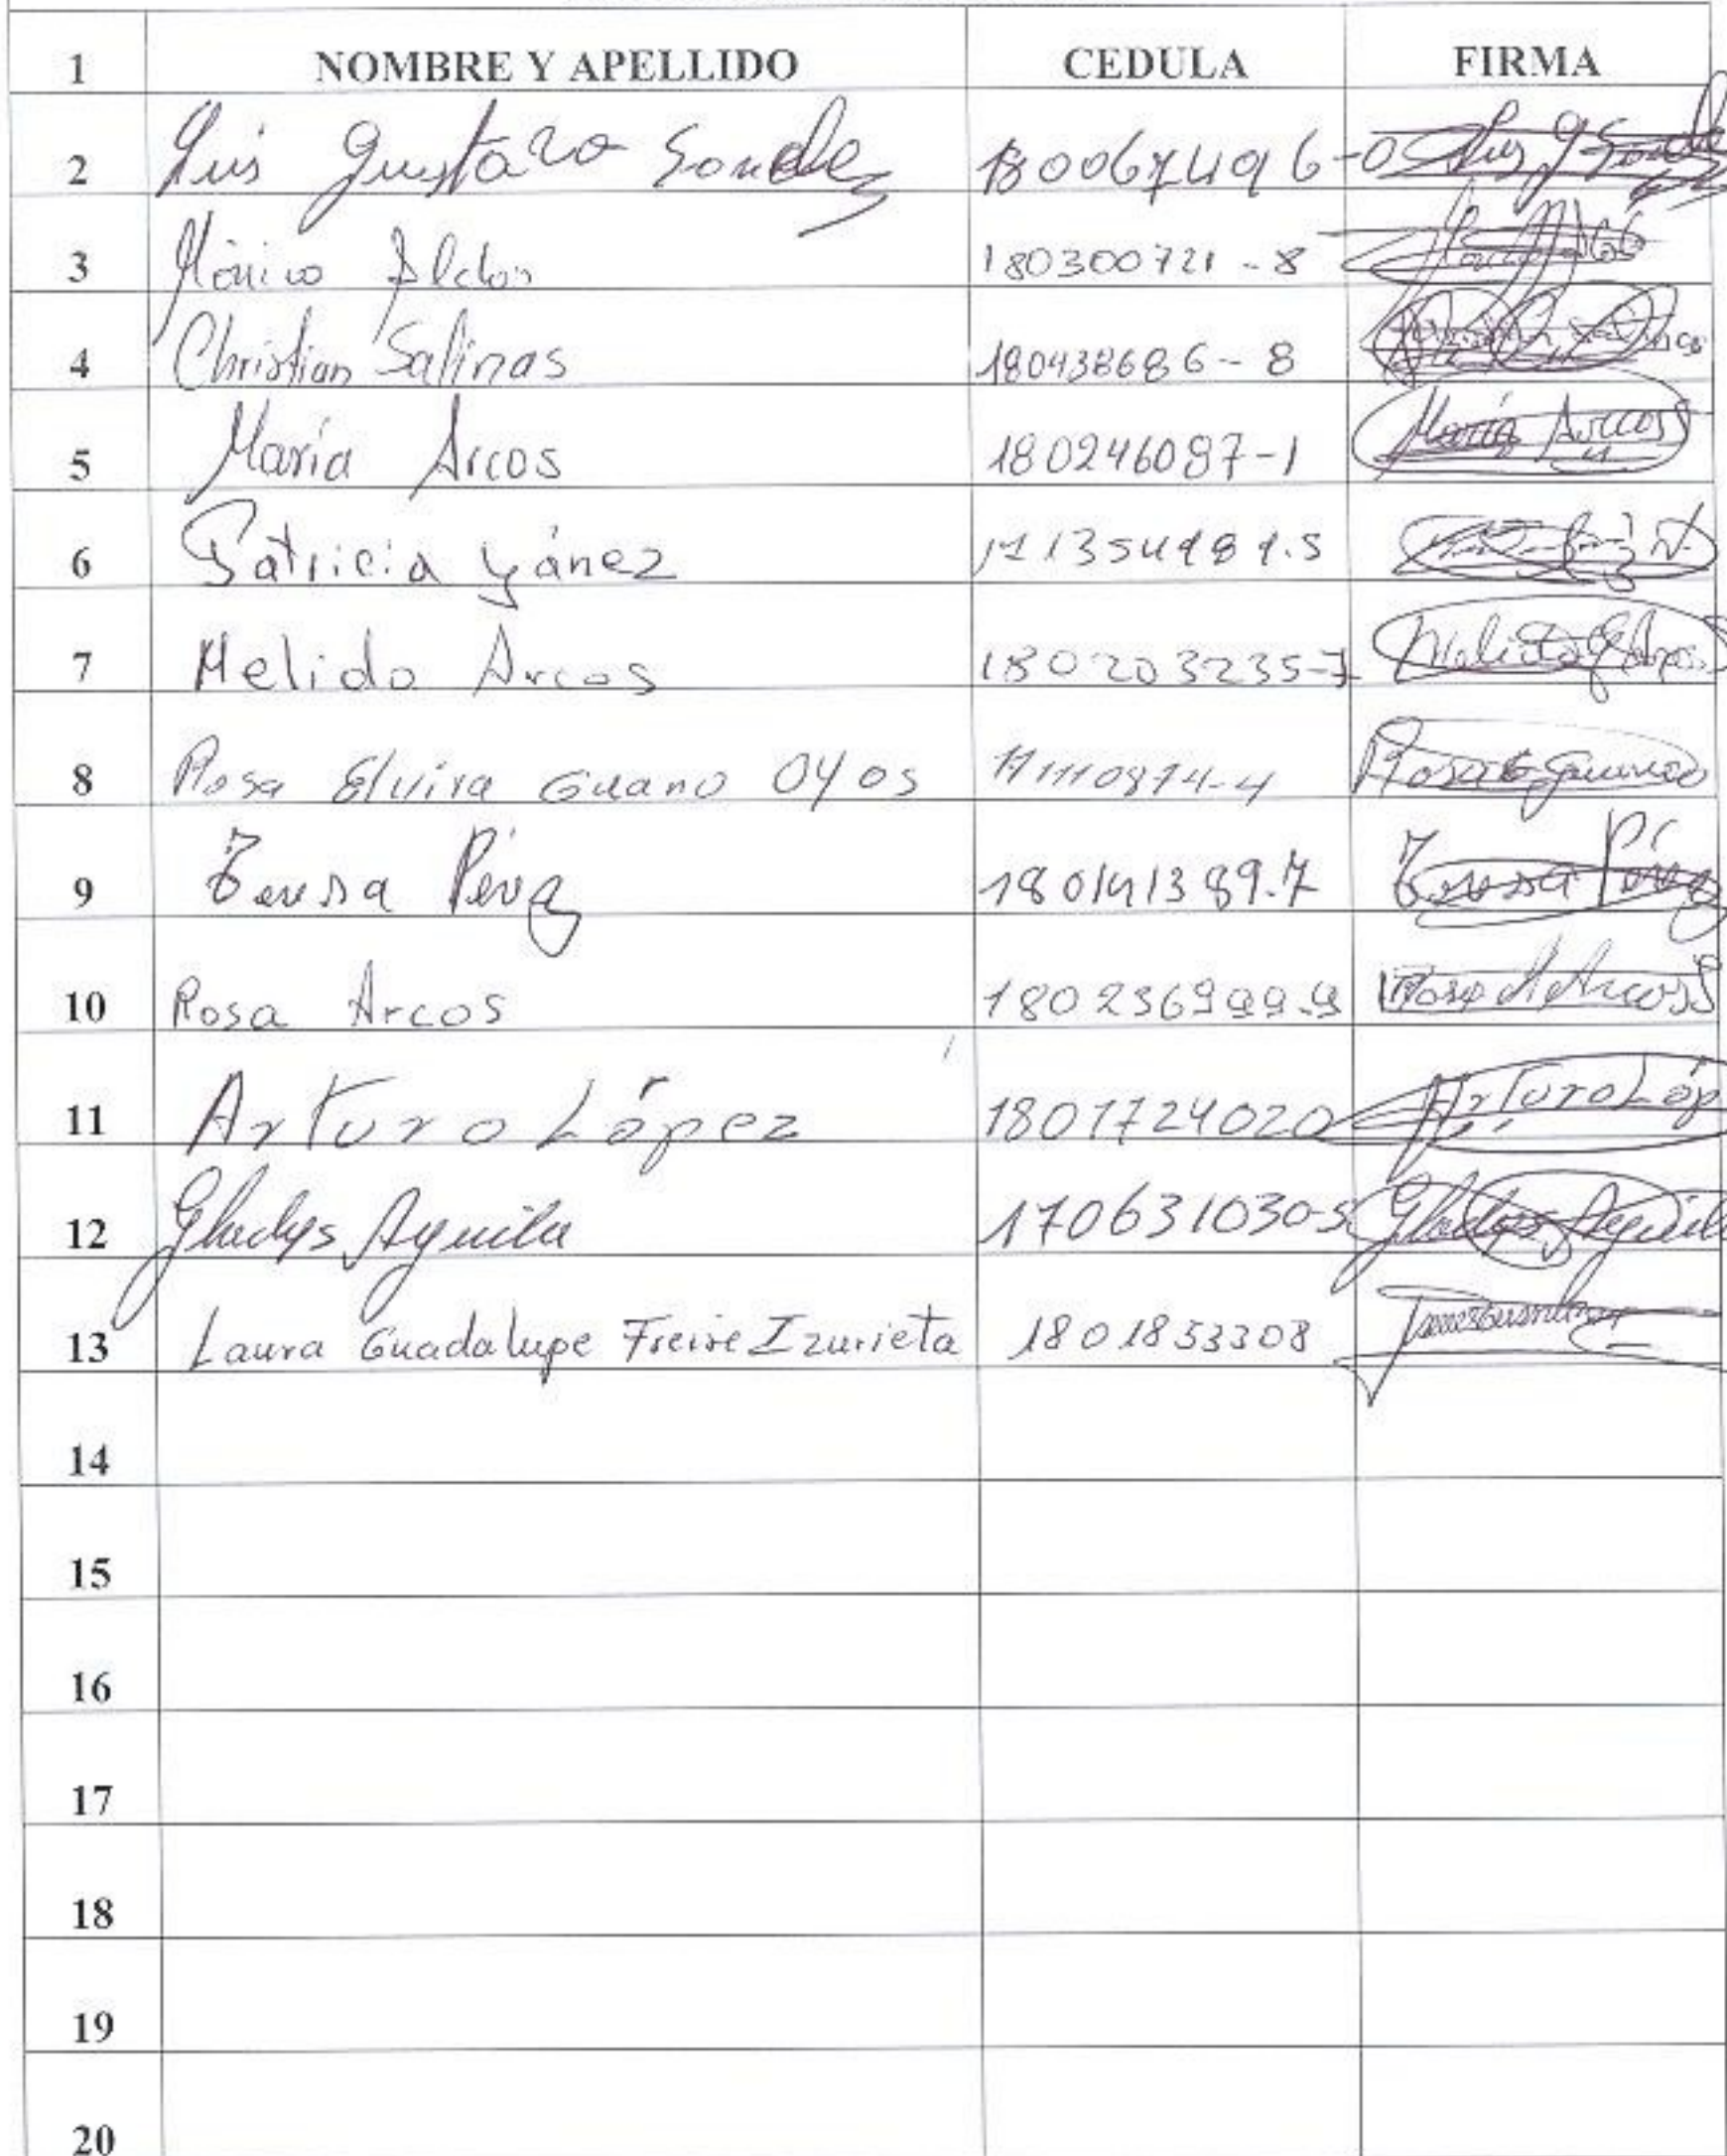 1 NOMBRE Y APELLIDO CEDULA FIRMA
2 Luis Gustavo 180067449 6-0 Luis G
3 180300721-8
4 Christian Salinas 180438686-8
5 María Arcos 180246097-1 María Arcos
6 Patricia Yánez
7 Melido Arcos 180203235-7
8 Rosa Elvira Guano Oyos Rosa E Guano
9 Teresa Pérez 180141389.7 Teresa Pérez
10 Rosa Arcos 180236999.9 Rosa Arcos
11 Arturo López 1801724020 Arturo Lóp
12 Gladys Aguila 170631030-5 Gladys Aguila
13 Laura Guadalupe Freire Izurieta 1801853308
14
15
16
17
18
19
20